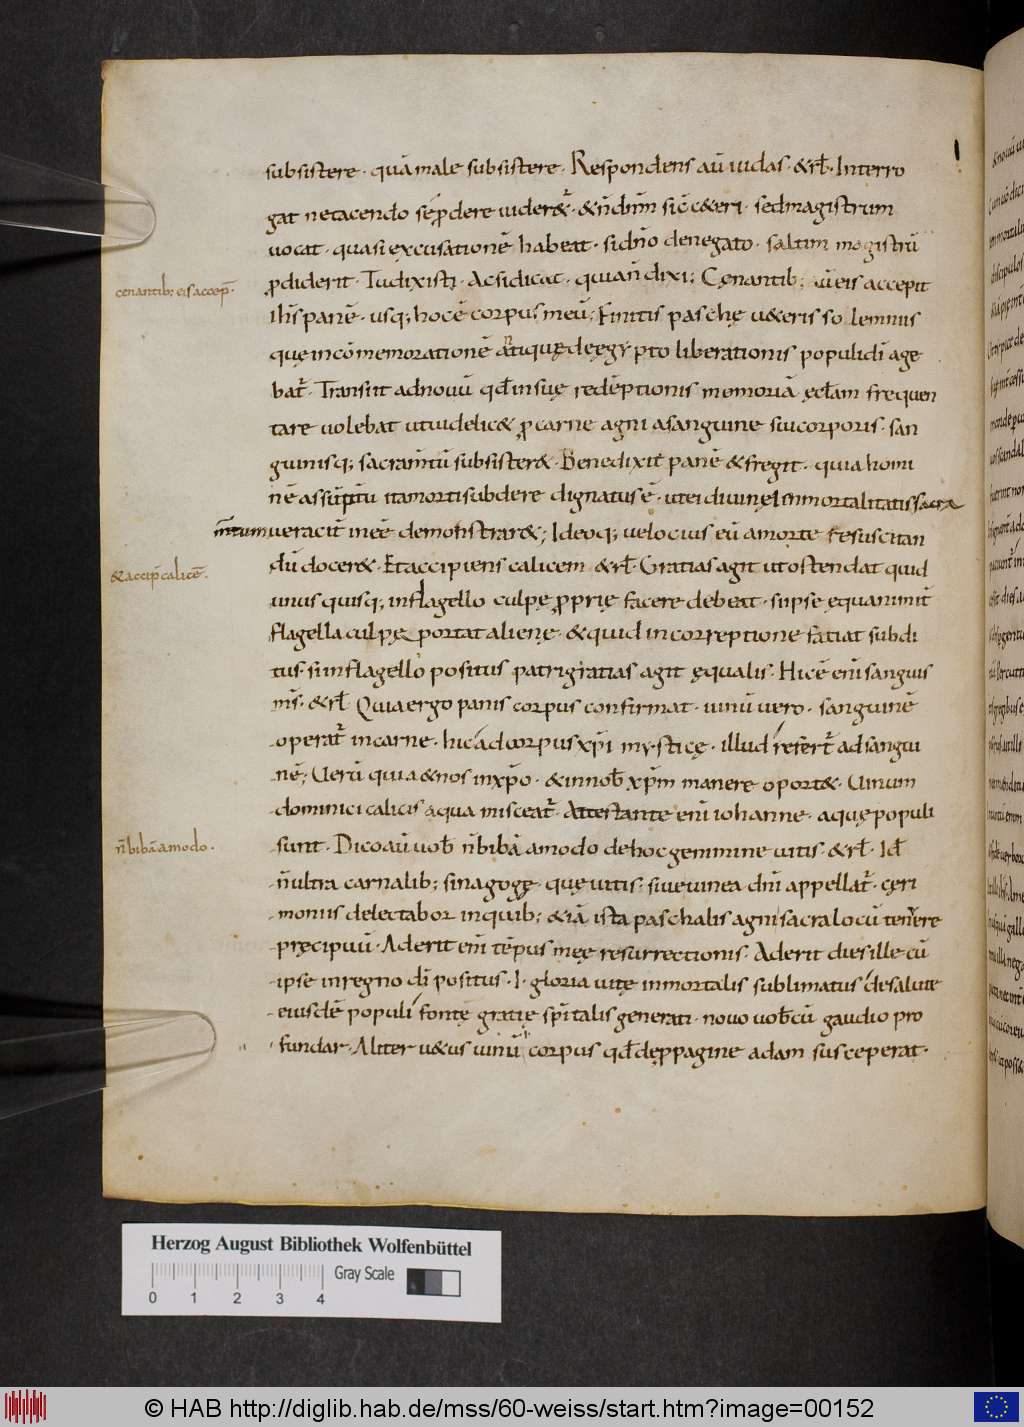 subsistere · quā male subsistere · Respondens aū iudas · & rł · Interro
gat ne tacendo se ꝓdere uider&ᷣ · & ñ dn̄m sic̄ c&eri · sed magistrum
uocat · quasi excusationē habeat · si dn̄o denegato · saltim magistrū
ꝓdiderit · Tu dixisti · Ac si dicat · quia ñ dixi; Cęnantib; aū eis accepit
cenantib; eis accep̄ ·
ih̄s panē · usq; hoc ē corpus meū; Finitis paschę u&eris solemniis
quę in cōmemorationē antiquę de ęgypto liberationis populi dī age
bat̄ · Transiit ad nouū qd̄ in suę redēptionis memoriā ęcłam frequen
tare uolebat ut uidelic& ꝓ carne agni a sanguine sui corporis · san
guinisq; sacram̄tū subsister& · Benedixit panē & fregit · quia homi
nē assūptū ita morti subdere dignatus ē · ut ei diuinę inmortalitatis sacra
m̄tum ueracit̄ inee demonstrar&; Ideoq; uelocius eū a morte resuscitan
dū docer& · Et accipiens calicem & rł · Gratias agit ut ostendat quid
& accip̄ calicē ·
unus quisq; in flagello culpę proprię facere debeat · si ipse ęquanimit̄
flagella culpę portat alienę · & quid in correptione faciat subdi
tus · si in flagello positus patri gratias agit ęqualis · Hic ē enī sanguis
m̄s · & rł Quia ergo panis corpus confirmat · uinū uero · sanguinē
operat̄ in carne · hic ad corpus xp̄i mysticę · illud refert̄ ad sangui
nē; Uerū quia & nos in xp̄o · & in nob̄ xp̄m manere oport& · Uinum
dominici calicis aqua misceat̄ · Attestante enī iohanne · aquę populi
sunt · Dico aū uob̄ ñ bibā amodo de hoc gemmine uitis · & rł · Id̄
ñ bibā amodo ·
ñ ultra carnalib; sinagogę · quę uitis · siue uinea dn̄i appellat̄ · cęri
moniis delectabor in quib; & iā ista paschalis agni sacra locū tenuere
pręcipuū · Aderit enī tēpus meę resurrectionis · Aderit dies ille cū
ipse in regno dī positus · I · gloria uitę inmortalis sublimatus de salute
eiusdē populi fonte gratię sp̄italis generati · nouo uob̄cū gaudio pro
fundar · Aliter u&us uinū corpus qd̄ de ꝓpagine adam susceperat ·
Herzog August Bibliothek Wolfenbüttel
Gray Scale
0 1 2 3 4
© HAB http://diglib.hab.de/mss/60-weiss/start.htm?image=00152